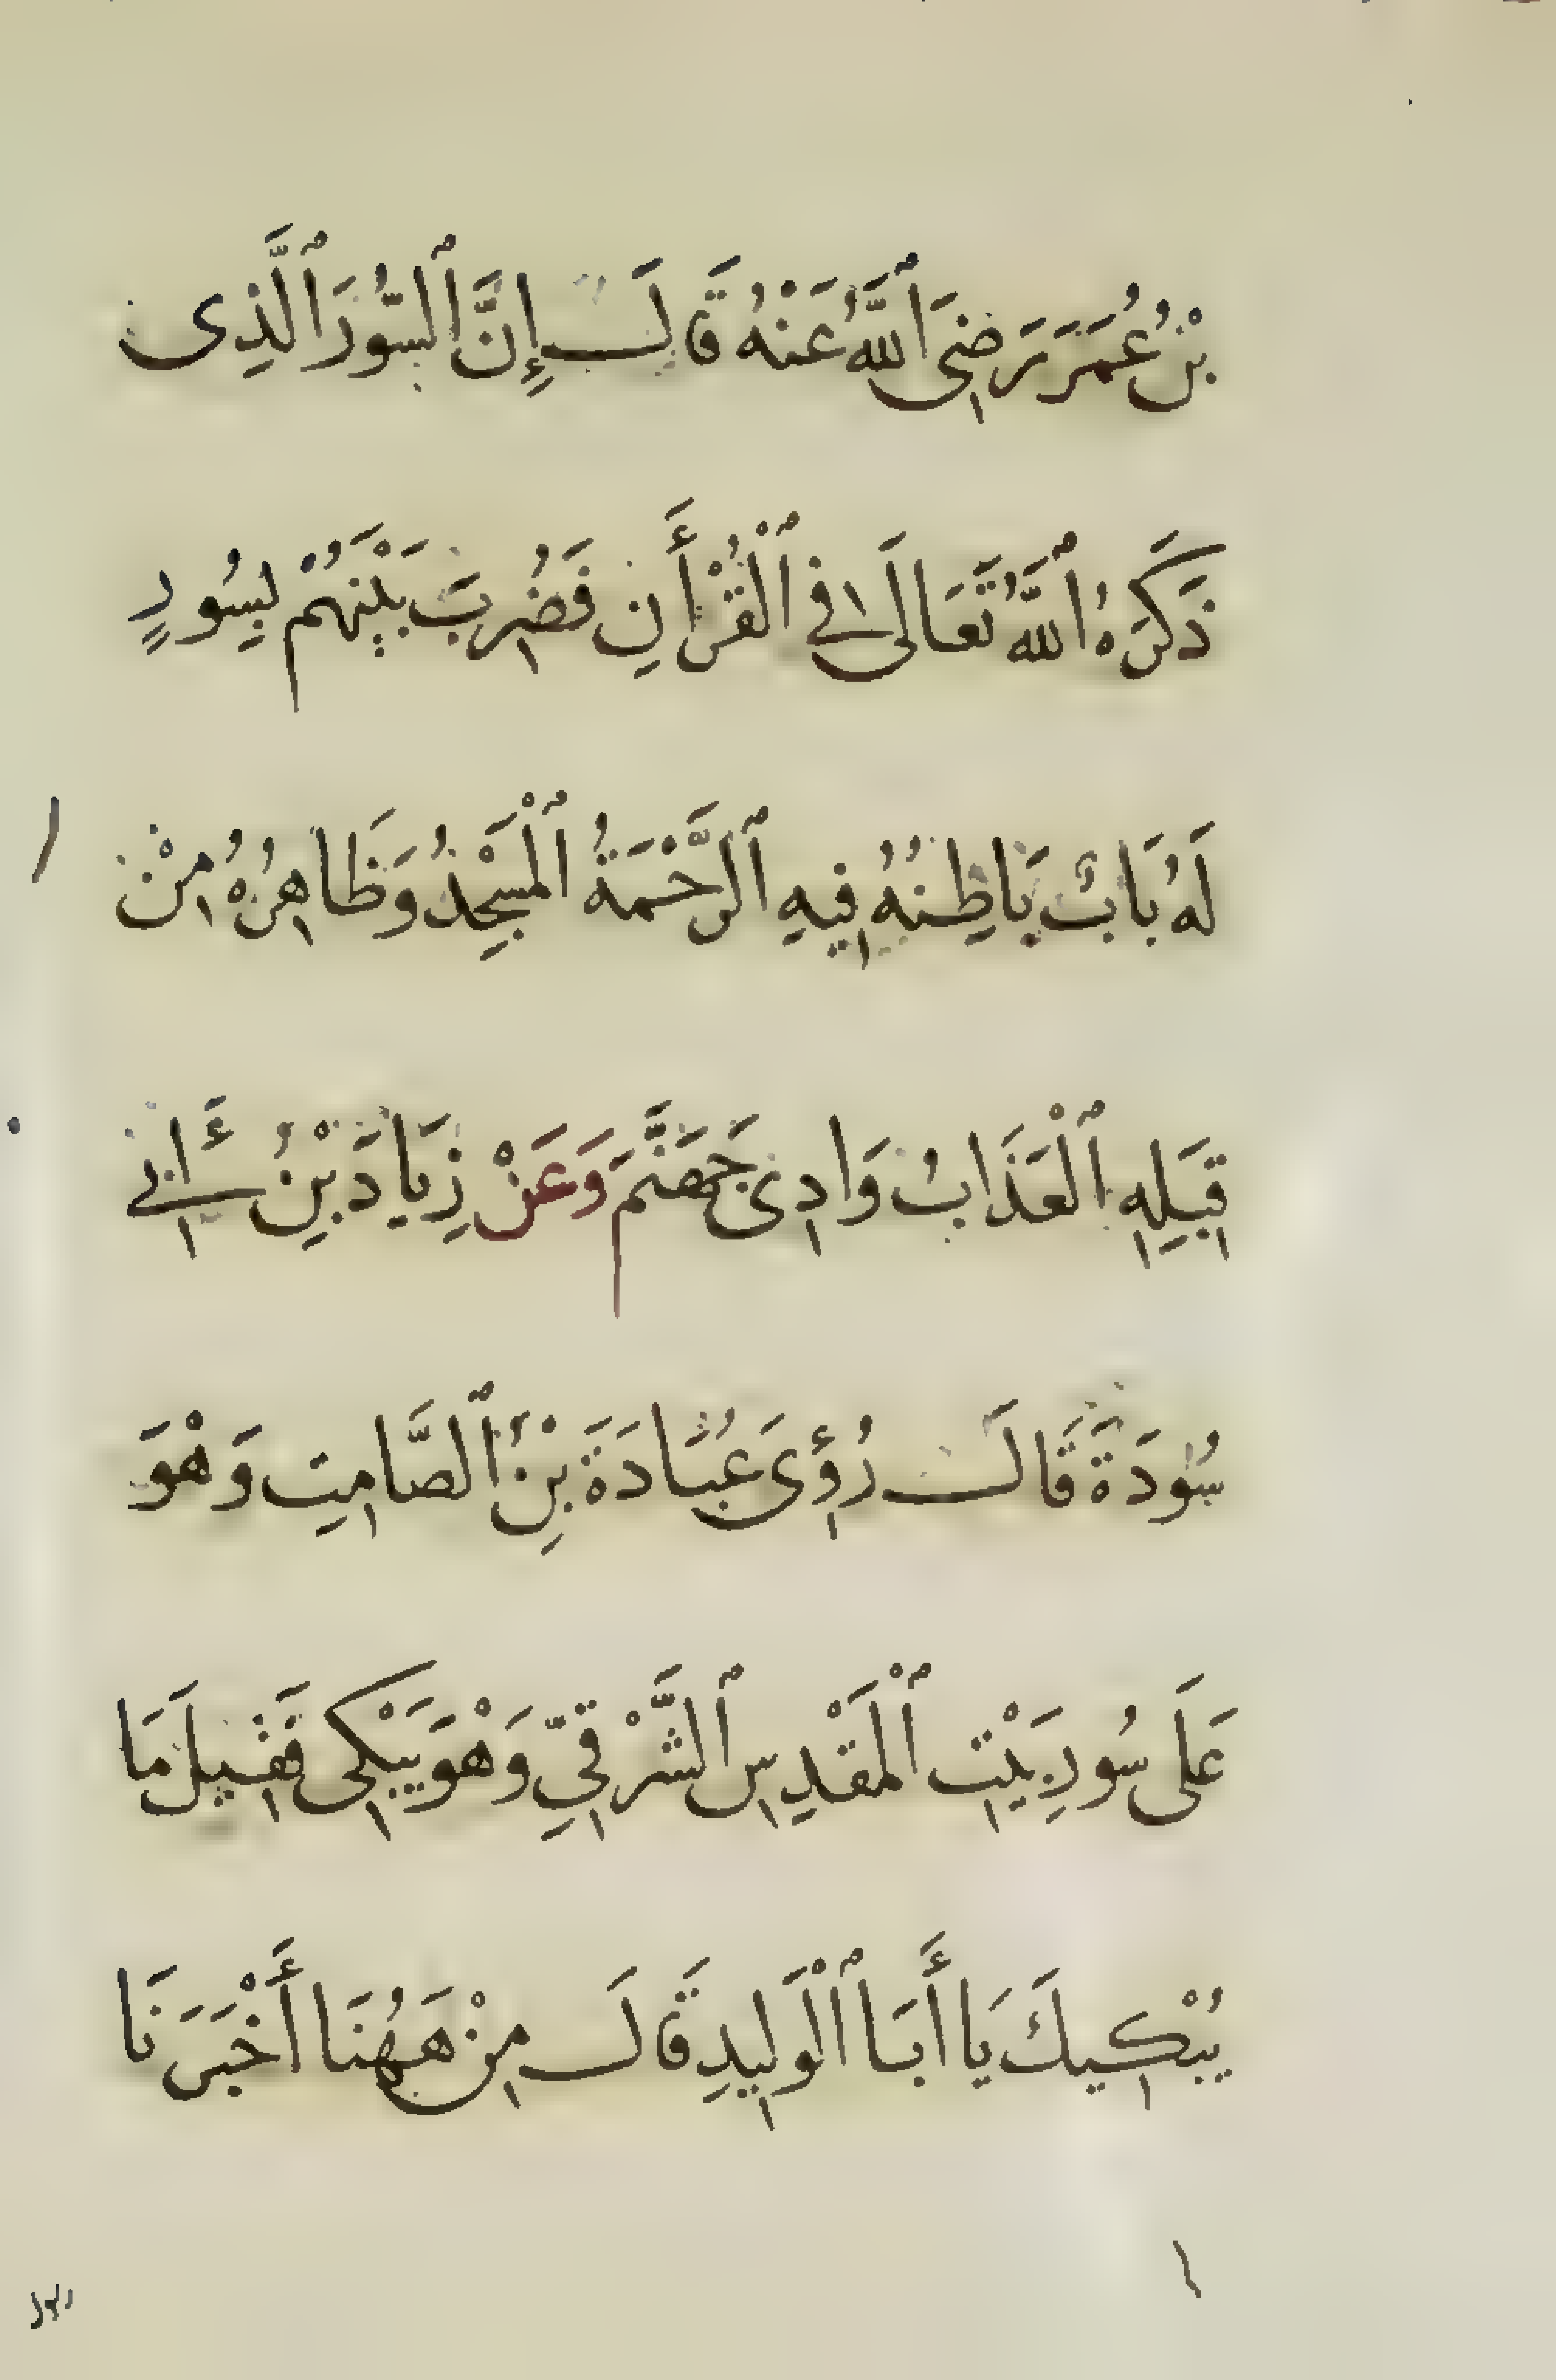 بْنِ عُمَرَ رَضِيَ ٱللَّهُ عَنْهُ قَالَ إِنَّ ٱلسُّورَ ٱلَّذِى
ذَكَرَهُ ٱللَّهُ تَعَالَى فِى ٱلْقُرْأَنِ فَضُرِبَ بَيْنَهُمْ بِسُورٍ
لَهُ بَابٌ بَاطِنُهُ فِيهِ ٱلرَّحْمَةُ ٱلْمَسْجِدُ وَظَاهِرُهُ مِنْ
قِبَلِهِ ٱلْعَذَابُ وَادِى جَهَنَّمَ وَعَنْ زِيَادَ بْنِ أَبِى
سُودَةَ قَالَ رُؤِىَ عُبَادَةَ بْنِ ٱلصَّامِتِ وَهْوَ
عَلَى سُورِ بَيْتِ ٱلْمَقْدِسِ ٱلشَّرْقِيِّ وَهْوَ يَبْكِى فَقِيلَ مَا
يُبْكِيكَ يَا أَبَا ٱلْوَلِيدِ قَالَ مِنْ هَهُنَا أَخْبَرَنَا
رسول